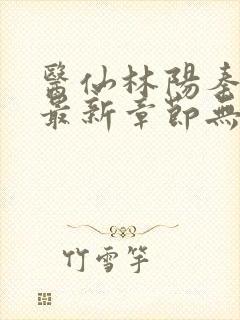 醫仙林陽秦
最新章節無
竹雪竿